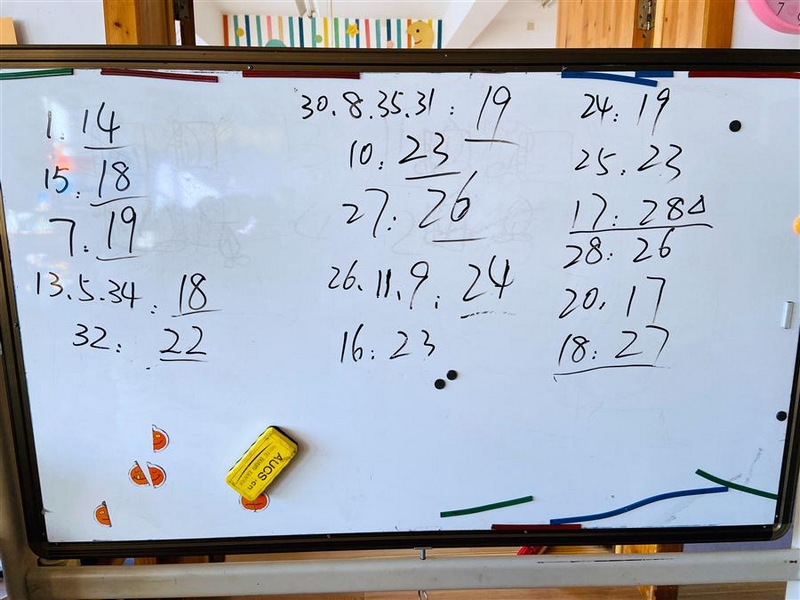 1. 14
15. 18
7. 19
13.5.34: 18
32: 22
30.8.35.31: 19
10: 23
27: 26
26.11.9: 24
16: 23
24: 19
25: 23
17: 28△
28: 26
20. 17
18: 27
AUCS-cn
7